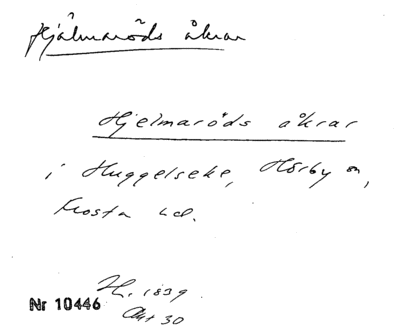 Hjälmaröds åkrar
Hjelmaröds åkrar
i Huggelseke, Hörby sn,
Frosta hd.
H. 1839
Akt 30
Nr 10446